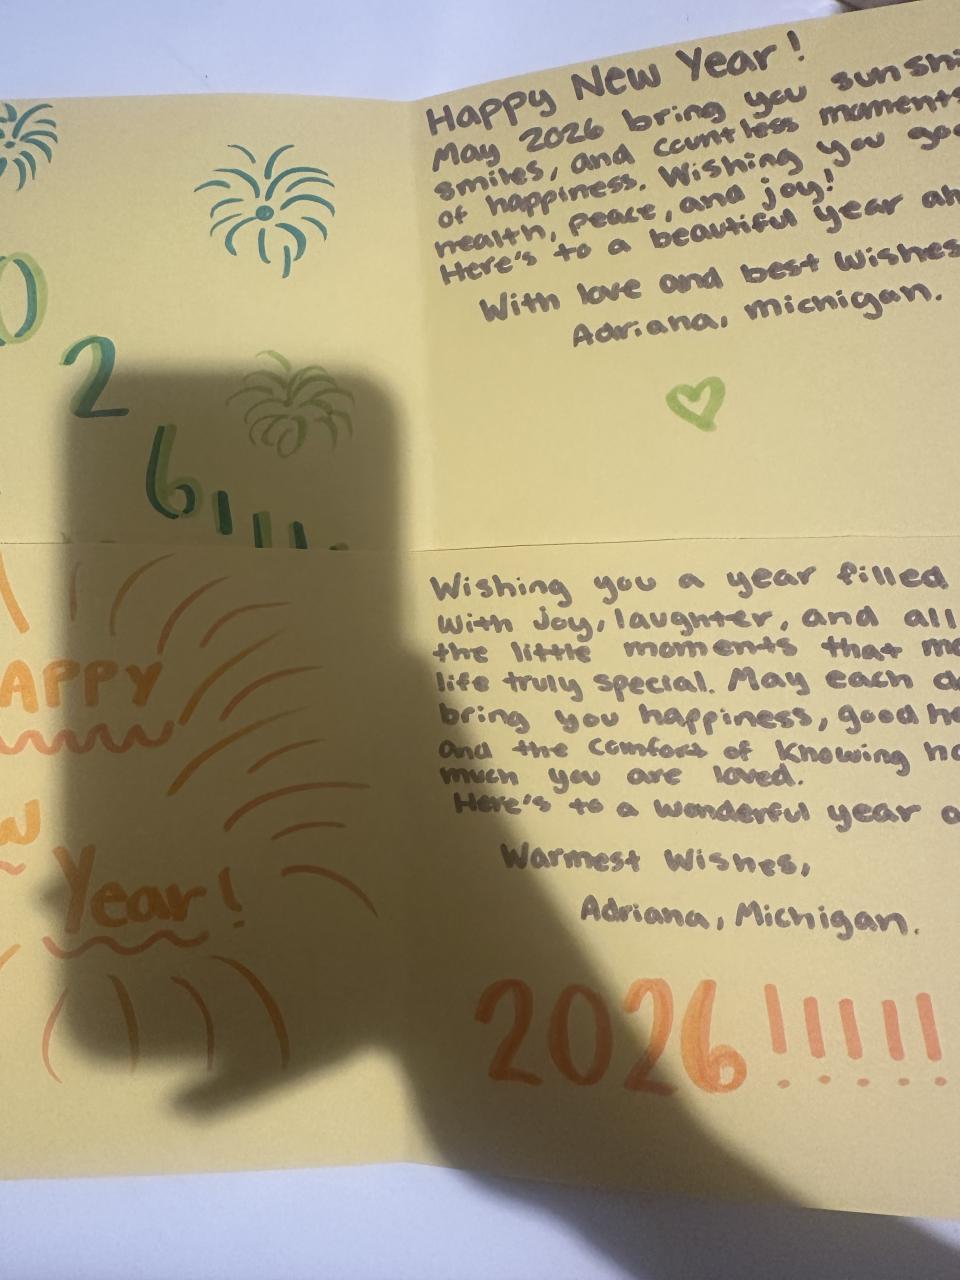 0
2
6!!!!
Happy New Year!
May 2026 bring you
smiles, and countless moments
of happiness. Wishing you
health, peace, and joy!
Here's to a beautiful year
With love and best wishes
Adriana, Michigan.
APPY
W
Year!
Wishing you a year filled
with joy, laughter, and all
the little moments that
life truly special. May each
bring you happiness, good
and the comfort of knowing
much you are loved.
Here's to a wonderful year
Warmest Wishes,
Adriana, Michigan.
2026!!!!!